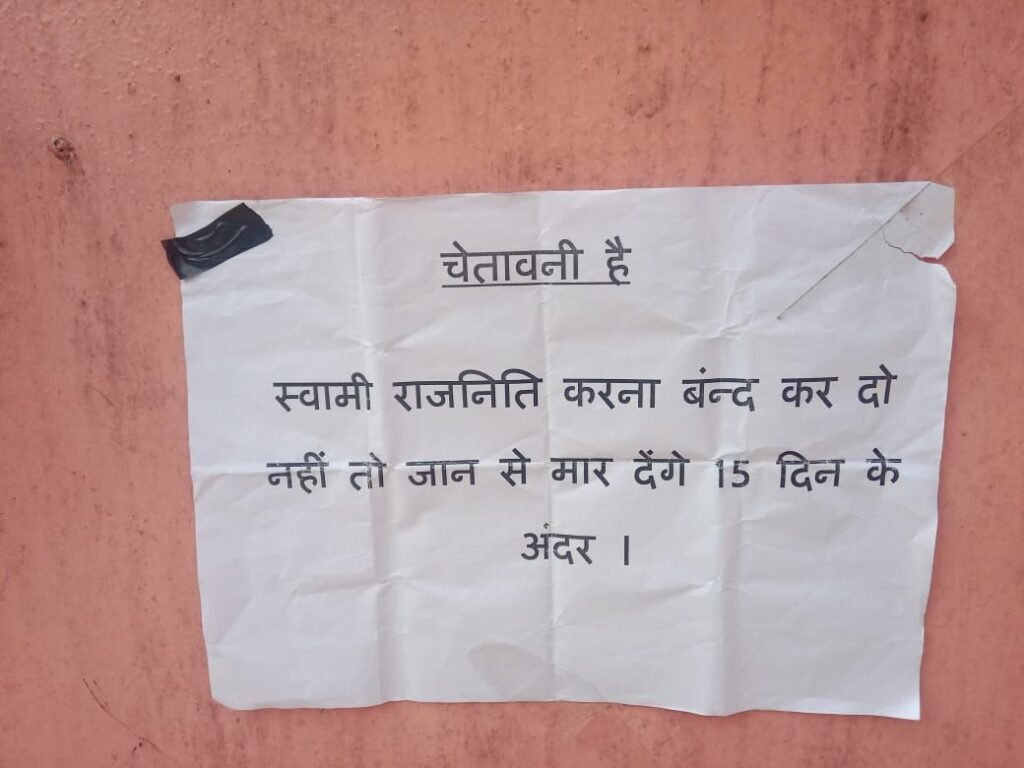 चेतावनी है
स्वामी राजनिति करना बंन्द कर दो
नहीं तो जान से मार देंगे 15 दिन के
अंदर ।